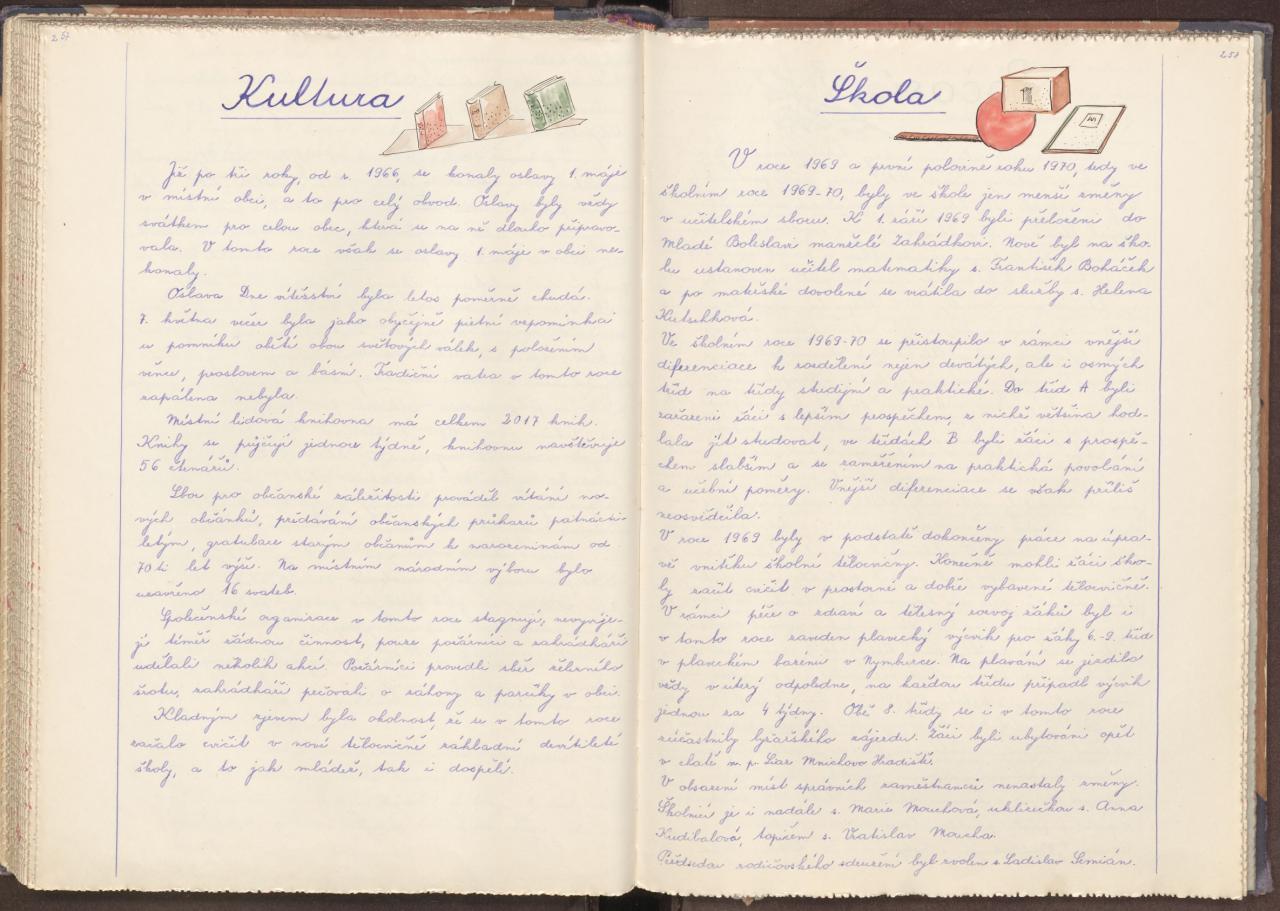 257
Kultura
Již po tři roky, od r. 1966, se konaly oslavy 1. máje
v místní obci, a to pro celý obvod. Oslavy byly vždy
svátkem pro celou obec, která se na ně dlouho připravo-
vala. V tomto roce však se oslavy 1. máje v obci ne-
konaly.
Oslava Dne vítězství byla letos poměrně chudá.
7. května večer byla jako obyčejně pietní vzpomínka
u pomníku obětí obou světových válek, s položením
věnce, proslovem a básní. Tradiční vatra v tomto roce
zapálena nebyla.
Místní lidová knihovna má celkem 2017 knih.
Knihy se půjčují jednou týdně, knihovnu navštěvuje
56 čtenářů.
Sbor pro občanské záležitosti prováděl vítání no-
vých občánků, předávání občanských průkazů patnácti-
letým, gratulace starým občanům k narozeninám od
70ti let výše. Na místním národním výboru bylo
uzavřeno 16 svateb.
Společenské organizace v tomto roce stagnují, nevyvíje-
jí téměř žádnou činnost, pouze požárníci a zahrádkáři
udělali několik akcí. Požárníci provedli sběr železného
šrotu, zahrádkáři pečovali o záhony a parčíky v obci.
Kladným zjevem byla okolnost, že se v tomto roce
začalo cvičit v nové tělocvičně základní devítileté
školy, a to jak mládež, tak i dospělí.
257
Škola
1
M
V roce 1969 a první polovině roku 1970, tedy ve
školním roce 1969-70, byly ve škole jen menší změny
v učitelském sboru. K 1. září 1969 byli přeloženi do
Mladé Boleslavi manželé Zahrádkovi. Nově byl na ško-
lu ustanoven učitel matematiky s. František Boháček
a po mateřské dovolené se vrátila do služby s. Helena
Kutschková.
Ve školním roce 1969-70 se přistoupilo v rámci vnější
diferenciace k rozdělení nejen devátých, ale i osmých
tříd na třídy studijní a praktické. Do tříd A byli
zařazeni žáci s lepším prospěchem, z nichž většina hod-
lala jít studovat, ve třídách B byli žáci s prospě-
chem slabším a se zaměřením na praktická povolání
a učební poměry. Vnější diferenciace se však příliš
neosvědčila.
V roce 1969 byly v podstatě dokončeny práce na úpra-
vě vnitřku školní tělocvičny. Konečně mohli žáci ško-
ly začít cvičit v prostorné a dobře vybavené tělocvičně.
V rámci péče o zdraví a tělesný rozvoj žáků byl i
v tomto roce zaveden plavecký výcvik pro žáky 6.-9. tříd
v plaveckém bazénu v Nymburce. Na plavání se jezdilo
vždy v úterý odpoledne, na každou třídu připadl výcvik
jednou za 4 týdny. Obě 8. třídy se i v tomto roce
zúčastnily lyžařského zájezdu. Žáci byli ubytováni opět
v chatě n. p. Liaz Mnichovo Hradiště.
V obsazení míst správních zaměstnanců nenastaly změny.
Školnicí je i nadále s. Marie Mouchová, uklizečkou s. Anna
Kudibalová, topičem s. Vratislav Moucha.
Předsedou rodičovského sdružení byl zvolen s. Ladislav Semián.